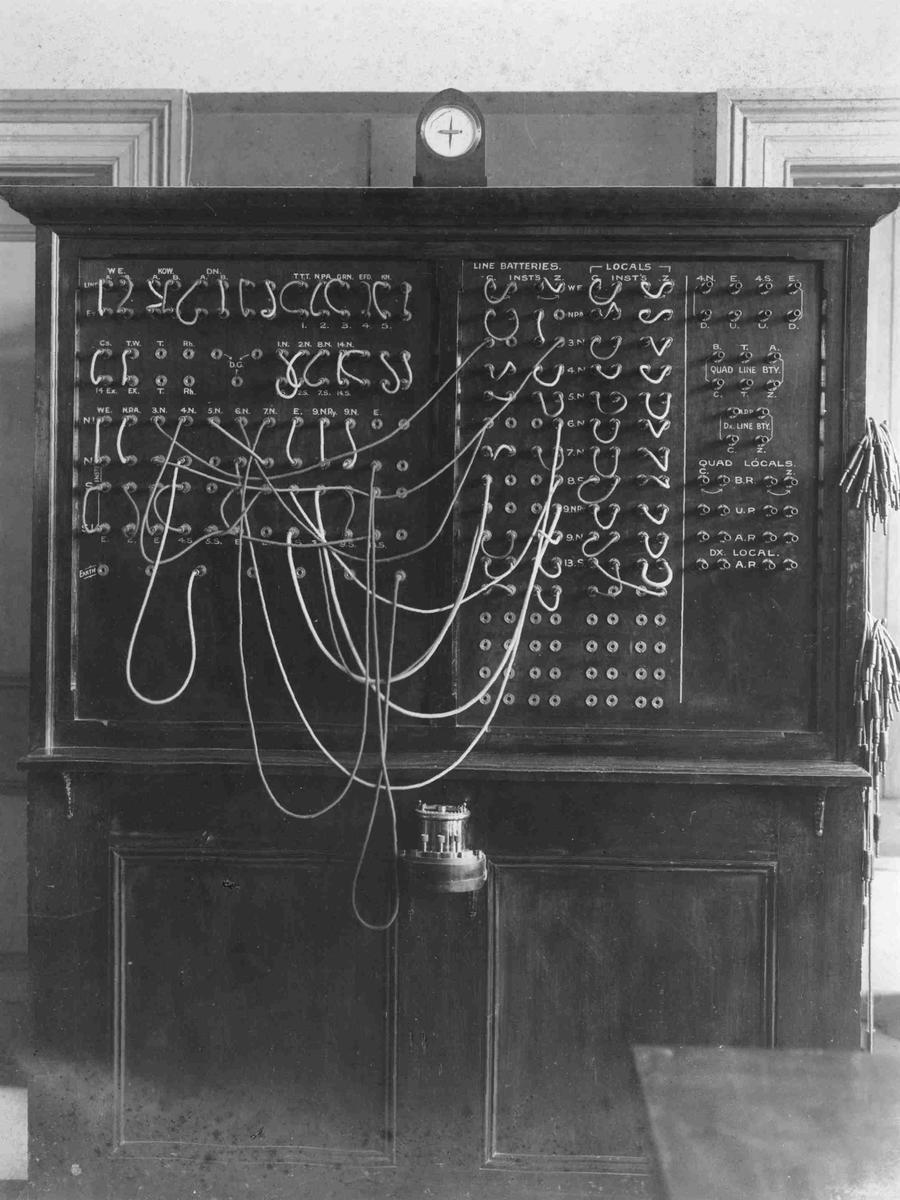 WE. KOW. DN.
A. B. A. B. A. B. T.T.T. NPA. GRN. EFD. KN.
LINE
E.
1. 2. 3. 4. 5.
Cs. T.W. T. Rh. 1.N. 2.N. 8.N. 14.N.
D.G.
14 Ex. EX. T. Rh. 2.S. 7.S. 14.S.
WE. N.P.A. 3.N. 4.N. 5.N. 6.N. 7.N. E. 9.NP. 9.N. E.
N
E. 4.S. 3.S. E. 9.S.
EARTH
LINE BATTERIES.
C. INSTS Z.
LOCALS
C. INST'S Z.
WE
NPA
3.N
4.N.
5.N
6.N.
7.N
8.S
9.NP.
9.N
13.S
4.N. E. 4.S. E.
D. U. U. D.
B. T. A.
QUAD LINE BTY.
C. T. Z.
Dx. LINE BTY.
C. Z.
QUAD LOCALS.
C. Z.
B.R
U.R
A.R
DX. LOCAL.
A.R